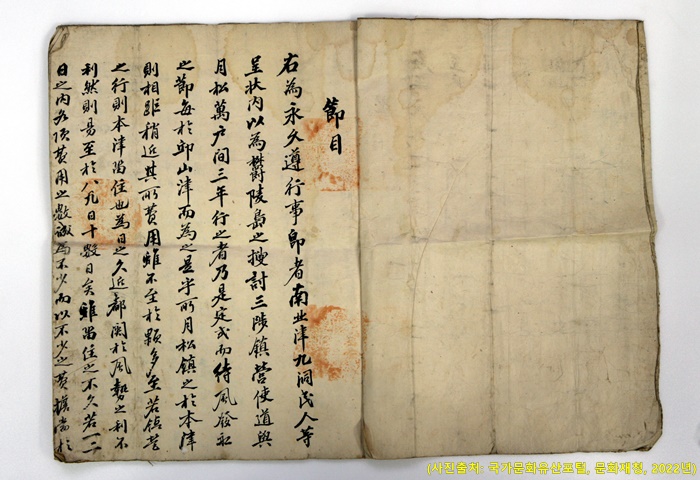 節目
右為永久遵行事卽者南北津九洞民人等
呈狀內以為欝陵島之搜討三陟鎭營使道與
月松萬戶間三年行之者乃是定式而待風發船
之節每於邱山津而為之是乎所月松鎭之於本津
則相距稍近其所費用雖不至於顆多至若鎭營
之行則本津留住也為日之久近都関於風勢之利不
利然則易至於八九日十數日矣雖留住之不久若一二
日之內各項費用之數為不少而以不少之費擔當於
(사진출처: 국가문화유산포털, 문화재청, 2022년)